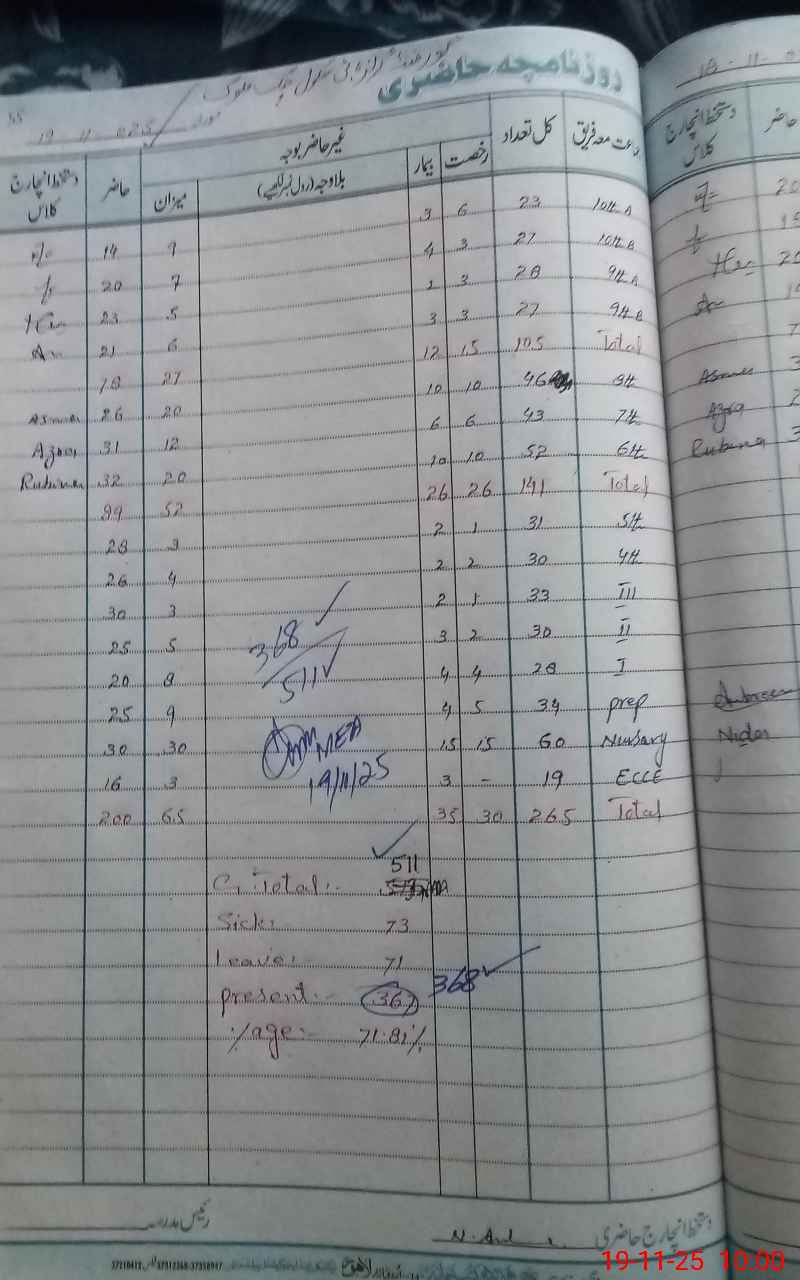 روزنامچہ حاضری
گورنمنٹ گرلز ہائی سکول چک ملوک
19 - 11 - 025 مورخہ
جماعت معہ فریق کل تعداد غیر حاضر بوجہ حاضر دستخط انچارج کلاس
رخصت بیمار بلاوجہ (رول نمبر لکھیے) میزان
10th A 23 6 3 9 14
10th B 27 3 4 7 20
9th A 28 3 2 5 23
9th B 27 3 3 6 21
Total 105 15 12 27 78
8th 46 10 10 20 26 Asma
7th 43 6 6 12 31 Azra
6th 52 10 10 20 32 Rubina
Total 141 26 26 52 99
5th 31 1 2 3 28
4th 30 2 2 4 26
III 33 1 2 3 30
II 30 2 3 5 25
I 28 4 4 8 20
prep 34 5 4 9 25
Nursary 60 15 15 30 30
ECCE 19 - 3 3 16
Total 265 30 35 65 200
368
511
MEA
19/11/25
511
G. Total:-
Sick: 73
Leave: 71
present:- 367 368
%age:- 71.81%
رئیس مدرسہ
دستخط انچارج حاضری
18 - 11 -
دستخط انچارج کلاس
حاضر
20
20
Asma
Azra
Rubina
Nida
لاہور
19-11-25 10:00